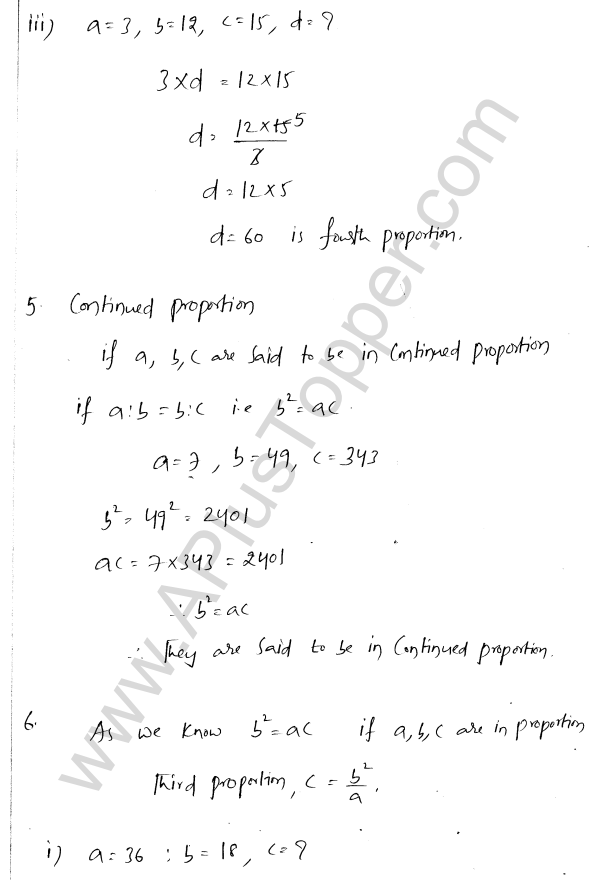 iii) a=3, b=12, c=15, d=?
3×d = 12×15
d= 12×15 5
3
d=12×5
d=60 is fourth proportion.
5. Continued proportion
if a, b, c are said to be in Continued proportion
if a:b = b:c i.e b²=ac.
a=7, b=49, c=343
b²= 49² = 2401
ac = 7×343 = 2401
∴ b²=ac
∴ They are said to be in Continued proportion.
6. As we know b²=ac if a,b,c are in proportion
Third proportion, c = b²/a.
i) a=36 ; b=18, c=?
www.APlusTopper.com